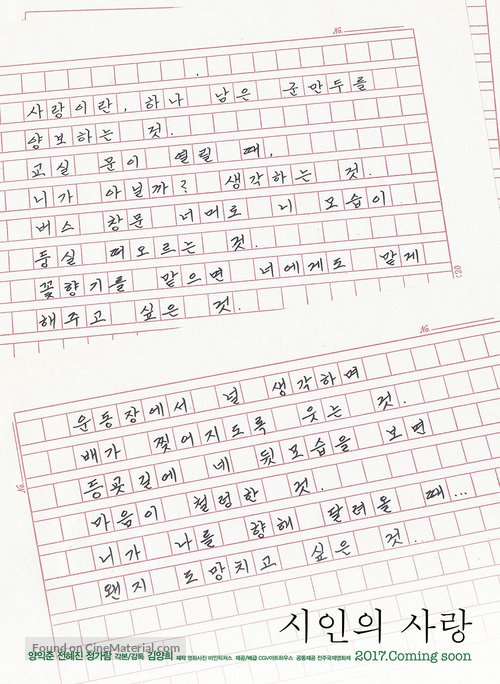 No.
사랑이란, 하나 남은 군만두를
양보하는 것.
교실 문이 열릴 때,
니가 아닐까? 생각하는 것.
버스 창문 너머로 니 모습이
둥실 떠오르는 것.
꽃향기를 맡으면 너에게도 맡게
해주고 싶은 것.
No.
운동장에서 널 생각하며
배가 찢어지도록 웃는 것.
등굣길에 네 뒷모습을 보면
마음이 철렁한 것.
니가 나를 향해 달려올 때...
왠지 도망치고 싶은 것.
No.
시인의 사랑
양익준 전혜진 정가람 각본/감독 김양희 제작 영화사진 미인픽쳐스 제공/배급 CGV아트하우스 공동제공 전주국제영화제 2017.Coming soon
Found on CineMaterial.com